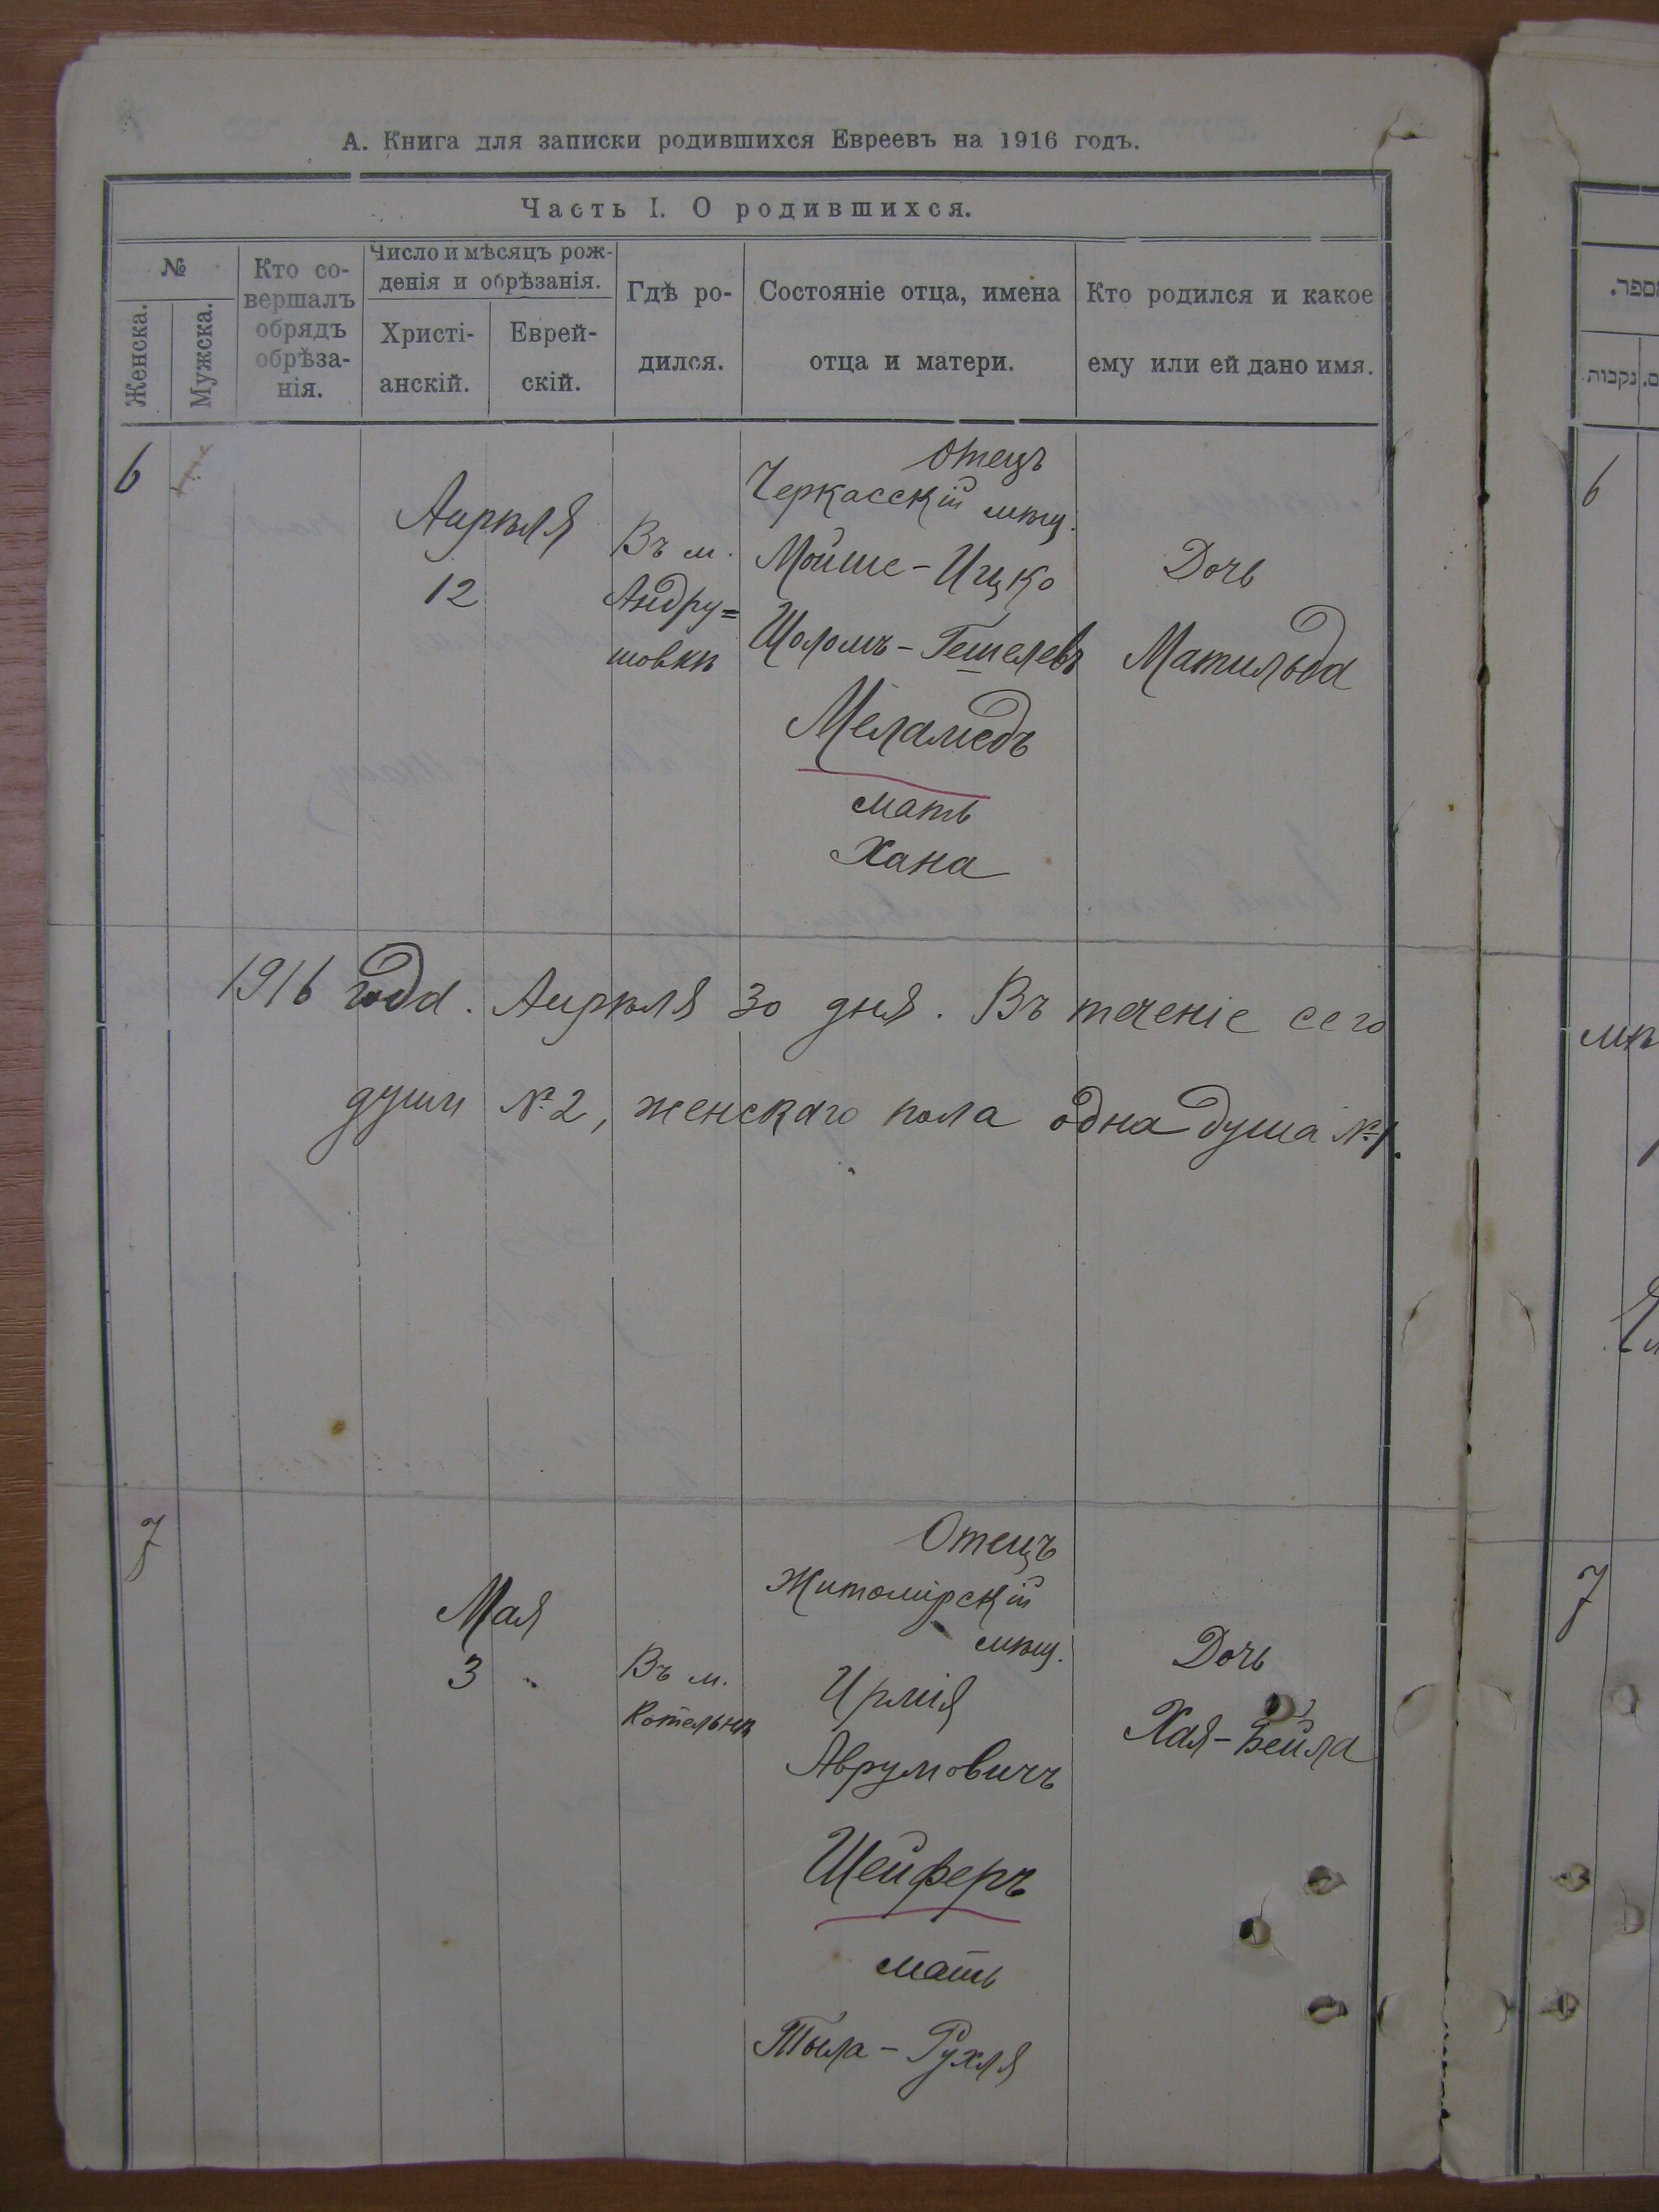 А. Книга для записки родившихся Евреевъ на 1916 годъ.
Часть I. О родившихся.
№
Женска.
Мужска.
Кто со-
вершалъ
обрядъ
обрѣза-
нія.
Число и мѣсяцъ рож-
денія и обрѣзанія.
Христі-
анскій.
Еврей-
скій.
Гдѣ ро-
дился.
Состояніе отца, имена
отца и матери.
Кто родился и какое
ему или ей дано имя.
6
Апрѣля
12
Въ м.
Андру=
шовкѣ
Отецъ
Черкасскій мѣщ.
Мойше-Ицко
Шоломъ-Гешелевъ
Меламедъ
мать
Хана
Дочь
Матильда
1916 года. Апрѣля 30 дня. Въ теченіе сего
души № 2, женскаго пола одна душа № 1.
7
Мая
3
Въ м.
Котельнѣ
Отецъ
Житомірскій
мѣщ.
Ирмія
Аврумовичъ
Шейферъ
мать
Тыла-Рухля
Дочь
Хая-Бейла
מספר.
נקבות
6
7